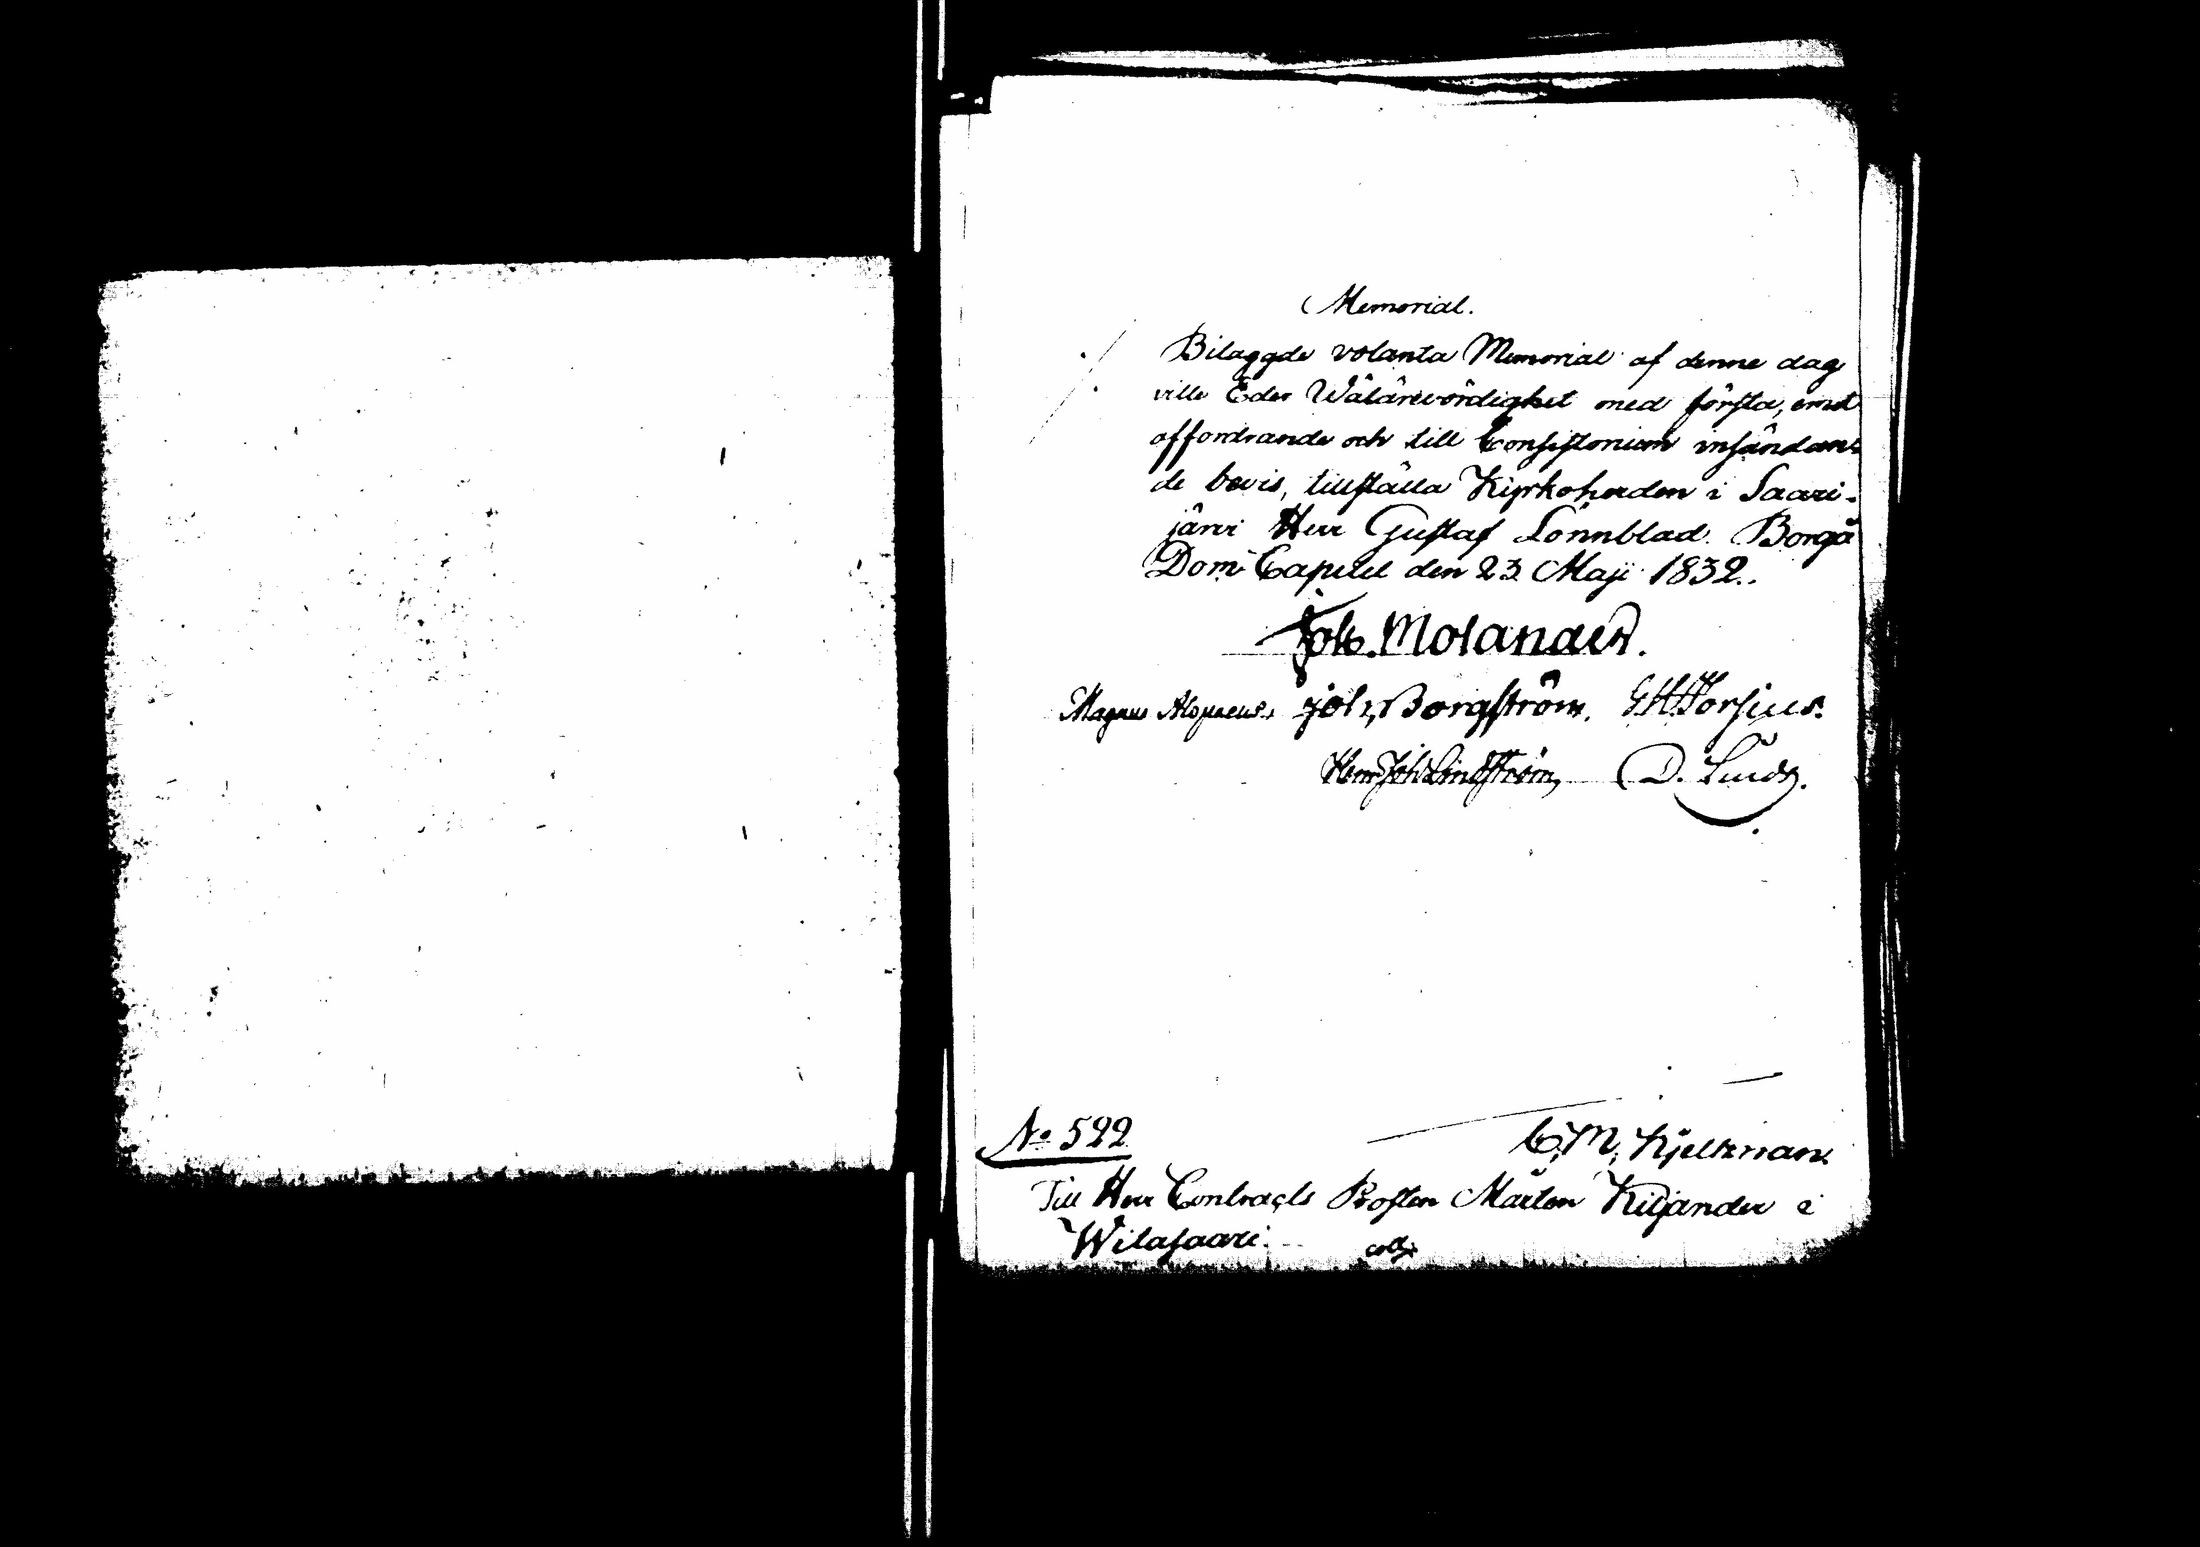 Memorial.
Bilaggde volanta Memorial af denne dag
ville Eder Wälärevördighet med första, emot
affordrande och till Consistorium insändan-
de bevis, tillställa Kyrkoherden i Saari-
järvi Herr Gustaf Lönnblad. Borgå
Dom Capitel den 23 Maji 1832.
Joh. Molander.
Magnus Alopaeus. Joh. Borgström. G. H. Forsius.
Henr. Joh. Lindström, D. Lund.
No 522
C. M. Kjellman
Till Herr Contracts Prosten Mårten Kiljander i
Witasaari.
coll